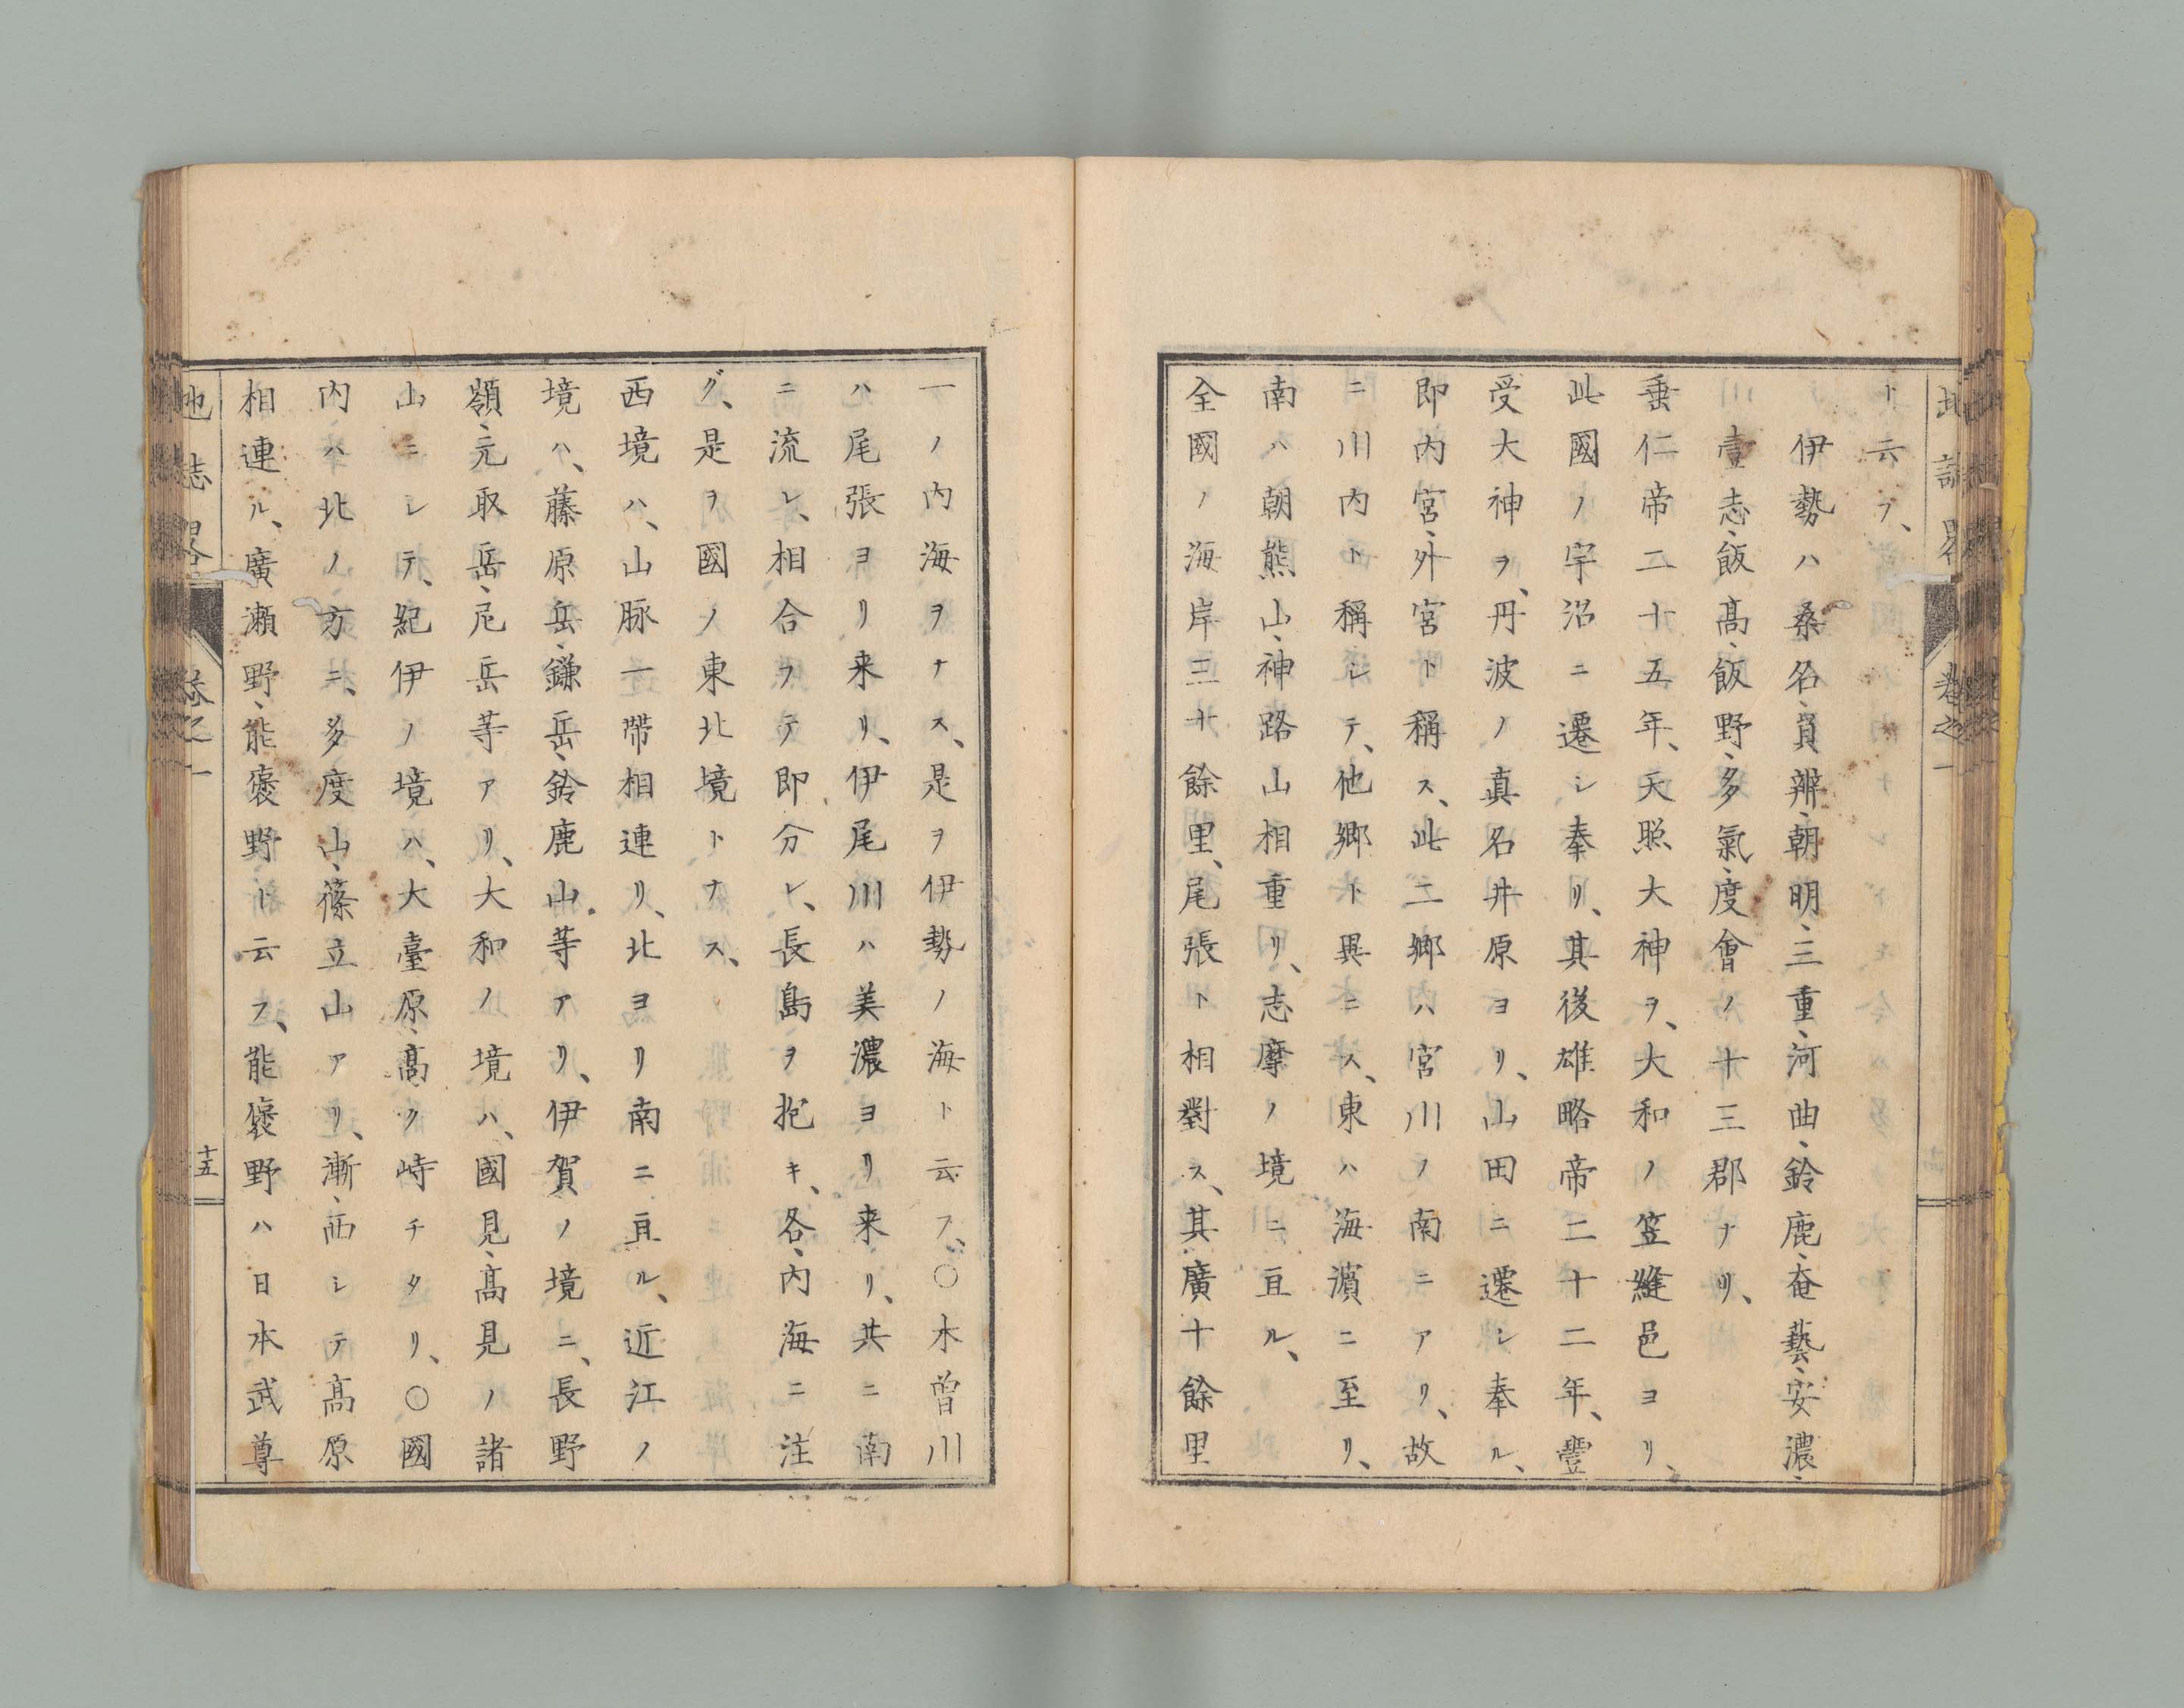 ト云フ、
伊勢ハ桑名、員辨、朝明、三重、河曲、鈴鹿、奄藝、安濃、
壹志、飯高、飯野、多氣、度會ノ十三郡ナリ、
垂仁帝二十五年、天照大神ヲ、大和ノ笠縫邑ヨリ、
此國ノ宇沼ニ遷シ奉リ、其後雄略帝二十二年、豐
受大神ヲ、丹波ノ真名井原ヨリ、山田ニ遷シ奉ル、
即内宮、外宮ト稱ス、此二郷ハ宮川ノ南ニアリ、故
ニ川内ト稱シテ、他郷ト異ニス、東ハ海濱ニ至リ、
南ハ朝熊山、神路山相重リ、志摩ノ境ニ亘ル、
全國ノ海岸三十餘里、尾張ト相對ス、其廣十餘里
一ノ内海ヲナス、是ヲ伊勢ノ海ト云フ、○木曾川
ハ尾張ヨリ来リ、伊尾川ハ美濃ヨリ来リ、共ニ南
ニ流レ、相合フテ即分レ、長島ヲ抱キ、各、内海ニ注
グ、是ヲ國ノ東北境トナス、
西境ハ、山脉一帶相連リ、北ヨリ南ニ亘ル、近江ノ
境ハ、藤原岳、鎌岳、鈴鹿山等アリ、伊賀ノ境ニ、長野
嶺、元取岳、尼岳等アリ、大和ノ境ハ、國見、高見ノ諸
山ニシテ、紀伊ノ境ハ、大臺原、高ク峙チタリ、○國
内ハ北ノ方ニ、多度山、篠立山アリ、漸、西シテ高原
相連ル、廣瀬野、能褒野ト云フ、能褒野ハ日本武尊
地誌畧 卷之一 十五